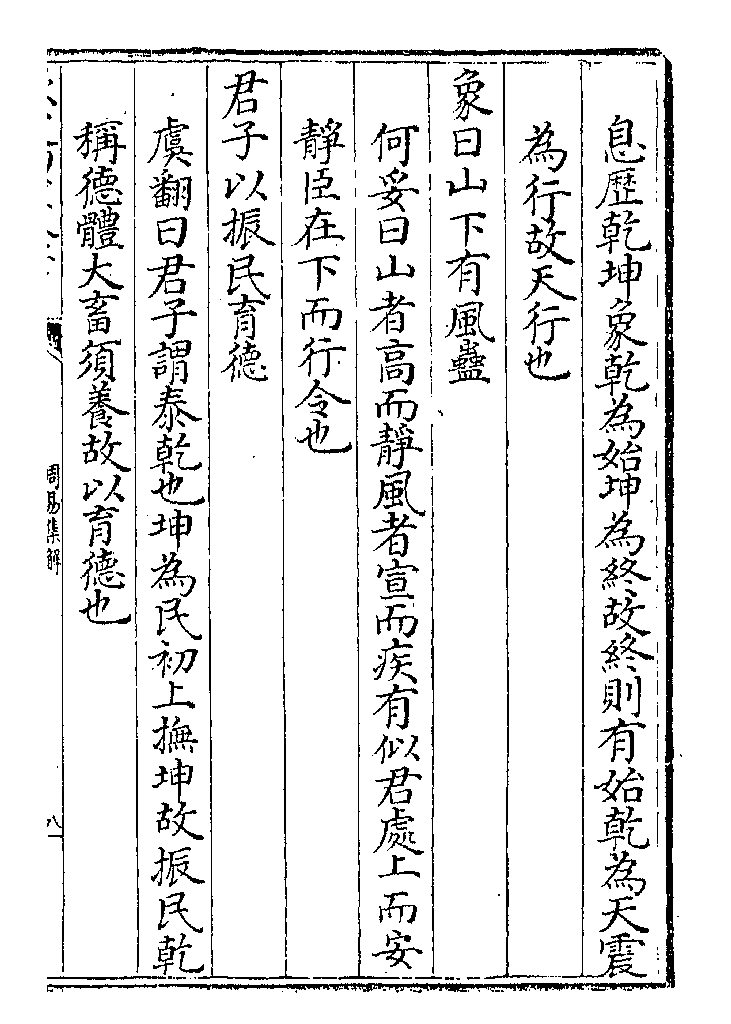 息歴乾坤象乾為始坤為終故終則有始乾為天震
為行故天行也
象曰山下有風蠱
何妥曰山者高而靜風者宣而疾有似君處上而安
靜臣在下而行令也
君子以振民育德
虞翻曰君子謂泰乾也坤為民初上撫坤故振民乾
稱德體大畜須養故以育德也
周易集解
八